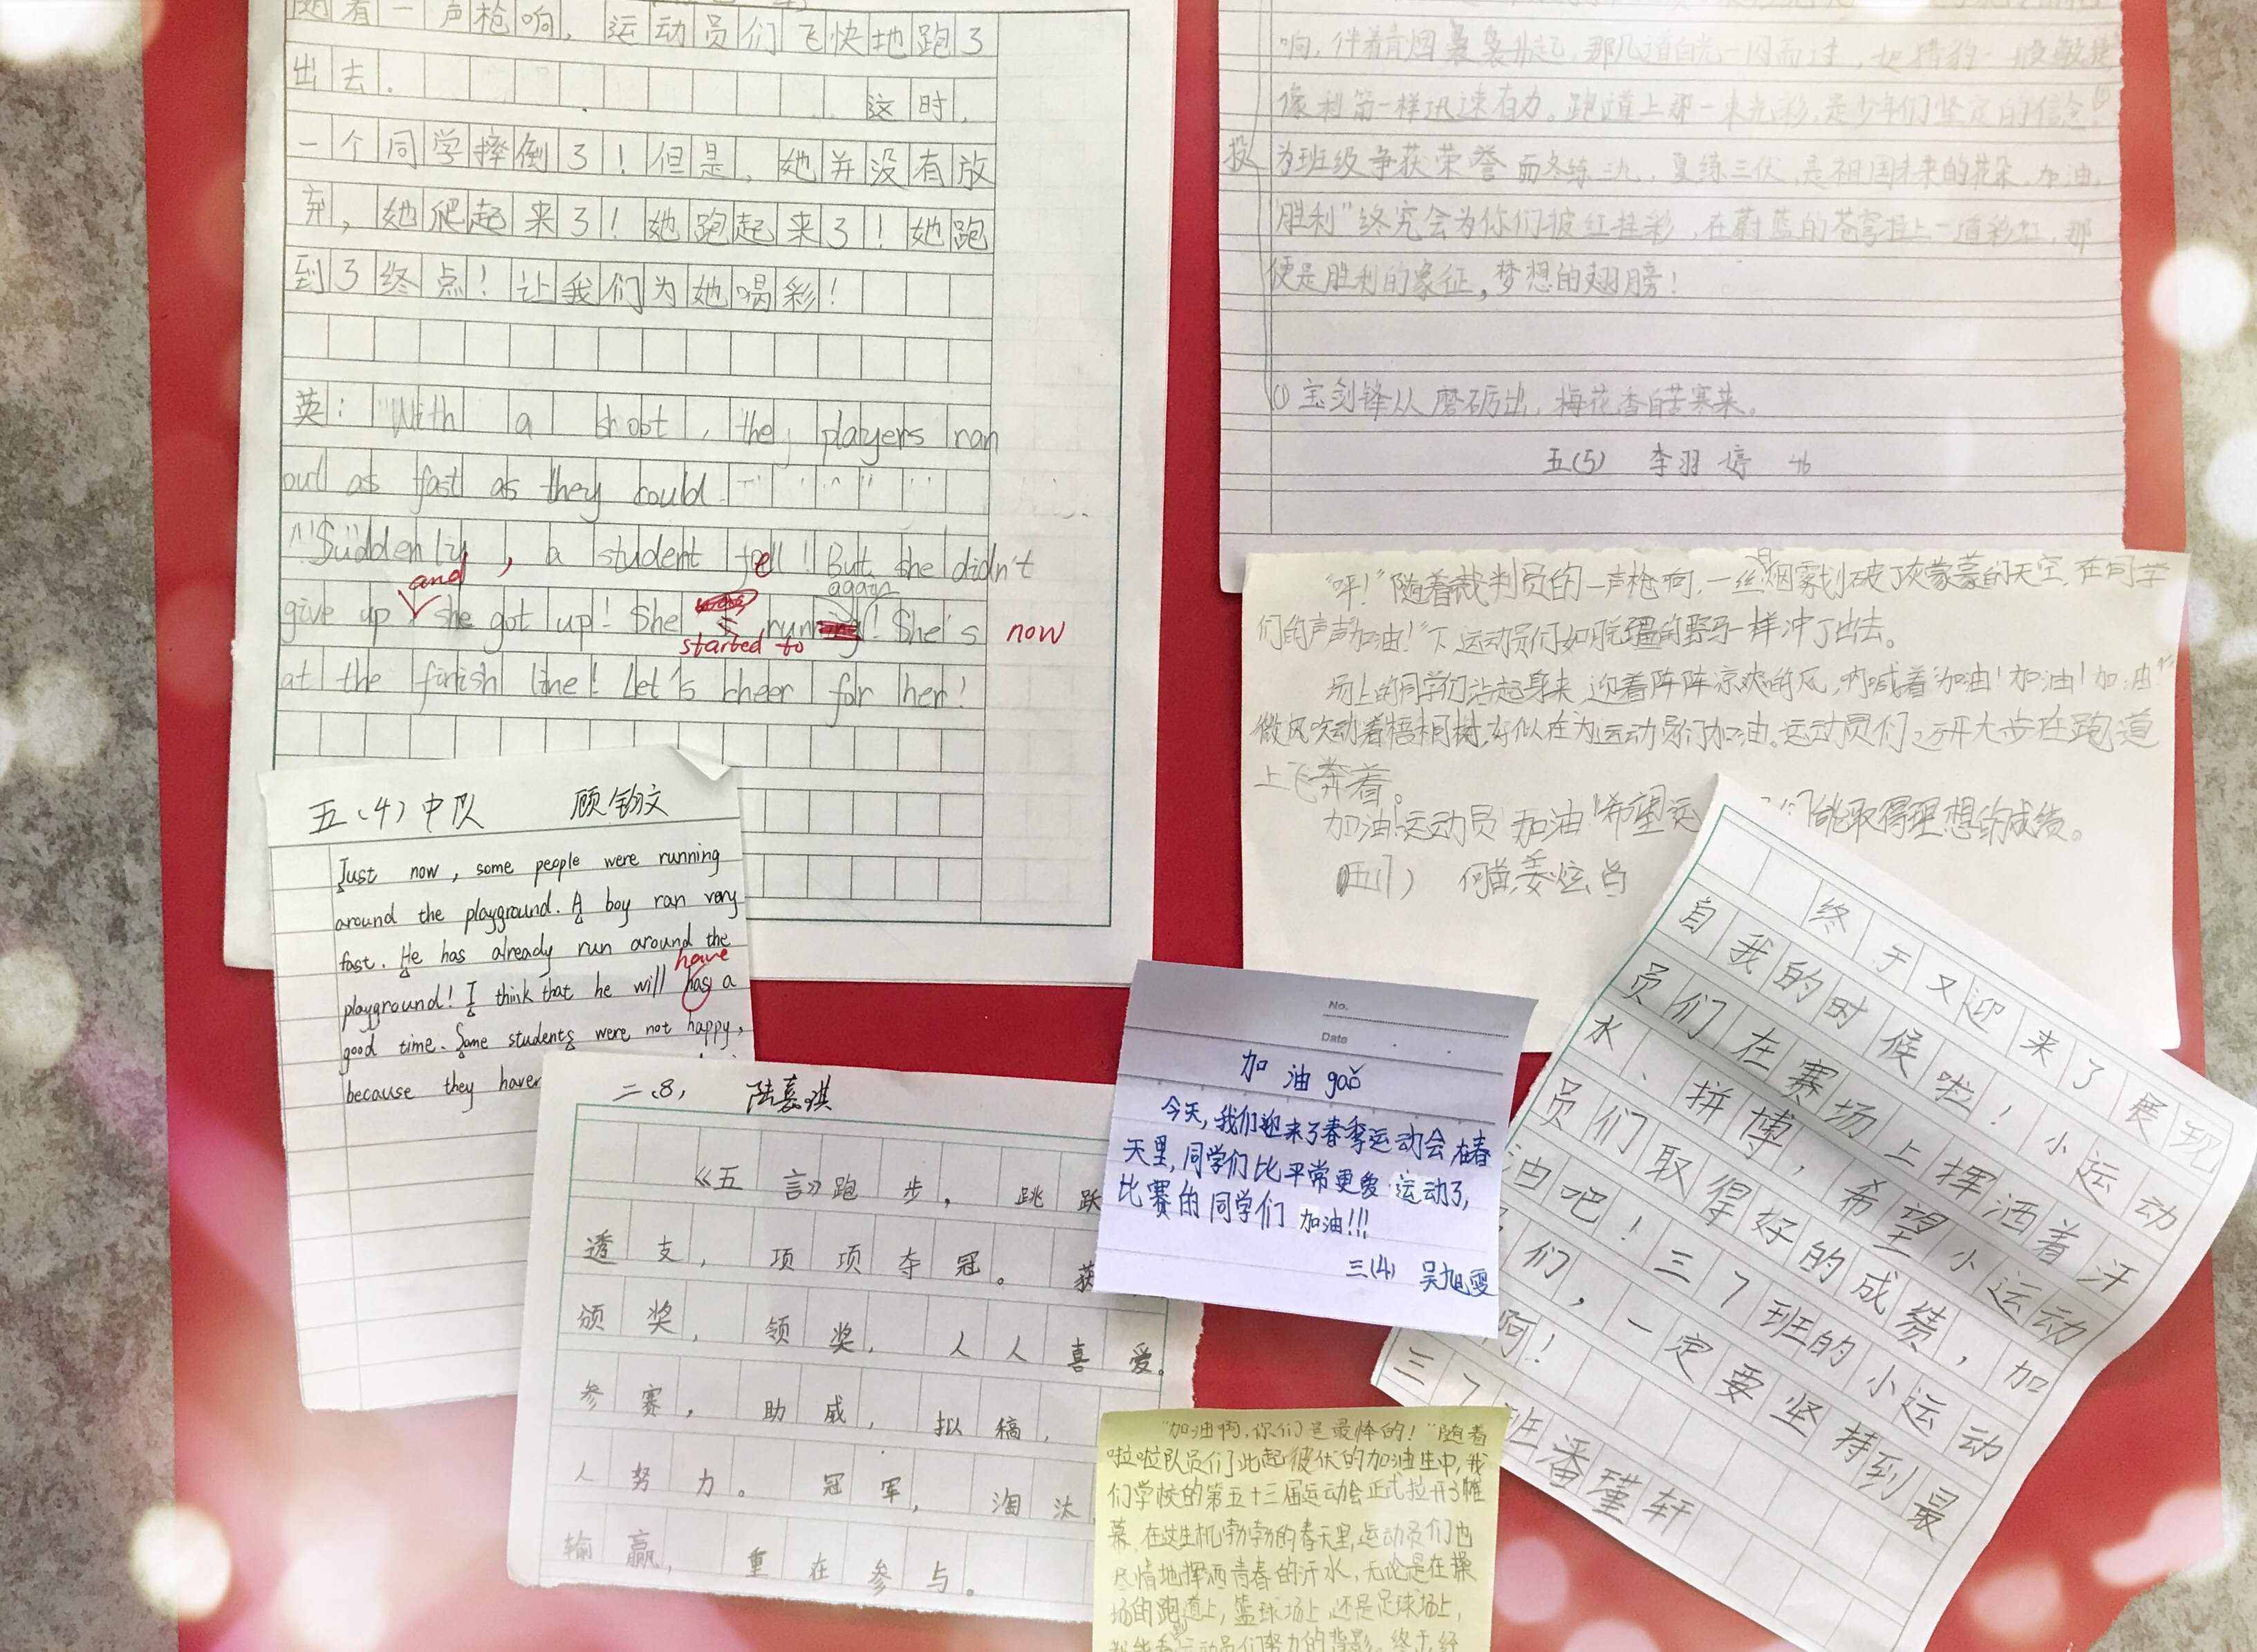 随着一声枪响，运动员们飞快地跑了
出去．
这时，
一个同学摔倒了！但是，她并没有放
弃，她爬起来了！她跑起来了！她跑
到了终点！让我们为她喝彩！
英：With a shoot, the players ran
out as fast as they could.
Suddenly, a student fell! But she didn't
and
again
give up she got up! She running! She's now
started to
at the finish line! Let's cheer for her!
五（4）中队 顾钧文
Just now, some people were running
around the playground. A boy ran very
fast. He has already run around the
have
playground! I think that he will has a
good time. Some students were not happy,
because they haven
二、8、 陆嘉淇
《五言》跑步，跳跃
透支，项项夺冠。获
颁奖，领奖，人人喜爱。
参赛，助威，拟稿，
人努力。冠军，淘汰
输赢，重在参与。
响，伴着青烟袅袅升起，那几道白光一闪而过，如猎豹一般敏捷
像利箭一样迅速有力。跑道上那一束光彩，是少年们坚定的信念
投
为班级争获荣誉而冬练三九，夏练三伏，是祖国未来的花朵。加油，
“胜利”终究会为你们披红挂彩，在蔚蓝的苍穹挂上一道彩虹，那
便是胜利的象征，梦想的翅膀！
① 宝剑锋从磨砺出，梅花香自苦寒来。
五(5) 李羽婷 46
“呯！”随着裁判员的一声枪响，一丝烟雾划破了灰蒙蒙的天空，在同学
们的声声“加油！”下，运动员们如脱疆的野马一样冲了出去。
场上的同学们站起身来，迎着阵阵凉爽的风，呐喊着“加油！加油！加油！”
微风吹动着梧桐树，好似在为运动员们加油。运动员们迈开大步在跑道
上飞奔着。
加油！运动员！加油！希望运 们能取得理想的成绩。
No.
Date
加油gǎo
今天，我们迎来了春季运动会在春
天里，同学们比平常更爱运动了，
比赛的同学们 加油!!!
三(4) 吴旭雯
终于又迎来了展现
自我的时候啦！小运动
员们在赛场上挥洒着汗
水、拼搏，希望小运动
员们取得好的成绩，加
油吧！三7班的小运动
们，一定要坚持到最
啊！
三7班潘瑾轩
“加油啊，你们是最棒的！”随着
啦啦队员们此起彼伏的加油生中，我
们学校的第五十三届运动会正式拉开了帷
幕。在这生机勃勃的春天里，运动员们也
尽情地挥洒青春的汗水，无论是在操
场的跑道上，篮球场上，还是足球场上，
运动员们努力的背影。终于，经